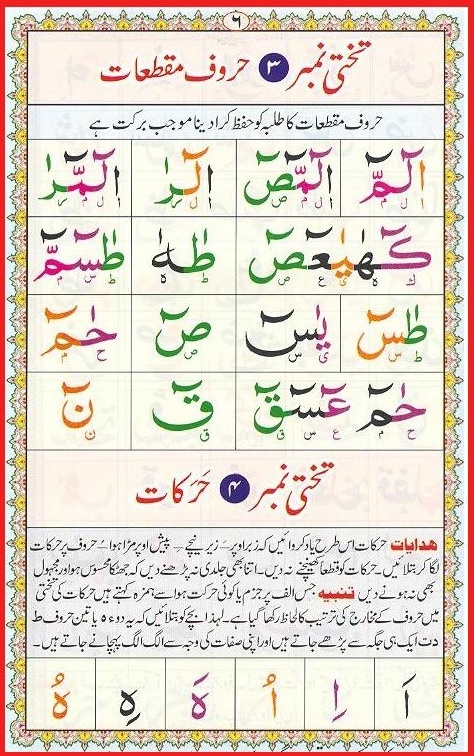 ۶
تختی نمبر ۳ حروف مقطعات
حروف مقطعات کا طلبہ کو حفظ کرا دینا موجب برکت ہے
الٓمّٓ الٓمّٓصٓ الٓرٰ الٓمّٓرٰ
كٓهٰيٰعٓصٓ طٰهٰ طٰسٓمّٓ
طٰسٓ يٰسٓ صٓ حٰمٓ
حٰمٓ عٓسٓقٓ قٓ نٓ
تختی نمبر ۴ حَرَکات
ھدایات حرکات اس طرح یاد کروائیں کہ زبر اوپر ے زیر نیچے ے پیش اوپر مڑا ہوا ے حروف پر حرکات
لگا کر بتلائیں۔ حرکات کو قطعاً کھینچنے نہ دیں۔ اتنا بھی جلدی نہ پڑھنے دیں کہ جھٹکا محسوس ہو اور مجہول
بھی نہ ہونے دیں تنبیہ جس الف پر جزم یا کوئی حرکت ہو اسے ہمزہ کہتے ہیں حرکات کی تختی
میں حروف کے مخارج کی ترتیب کا لحاظ رکھا گیا ہے۔ لہذا بچے کو بتلائیں کہ یہ دو یا تین حروف ط
د ت ایک ہی جگہ سے پڑھے جاتے ہیں اور اپنی صفات کی وجہ سے الگ الگ پہچانے جاتے ہیں۔
اَ اِ اُ هَ هِ هُ